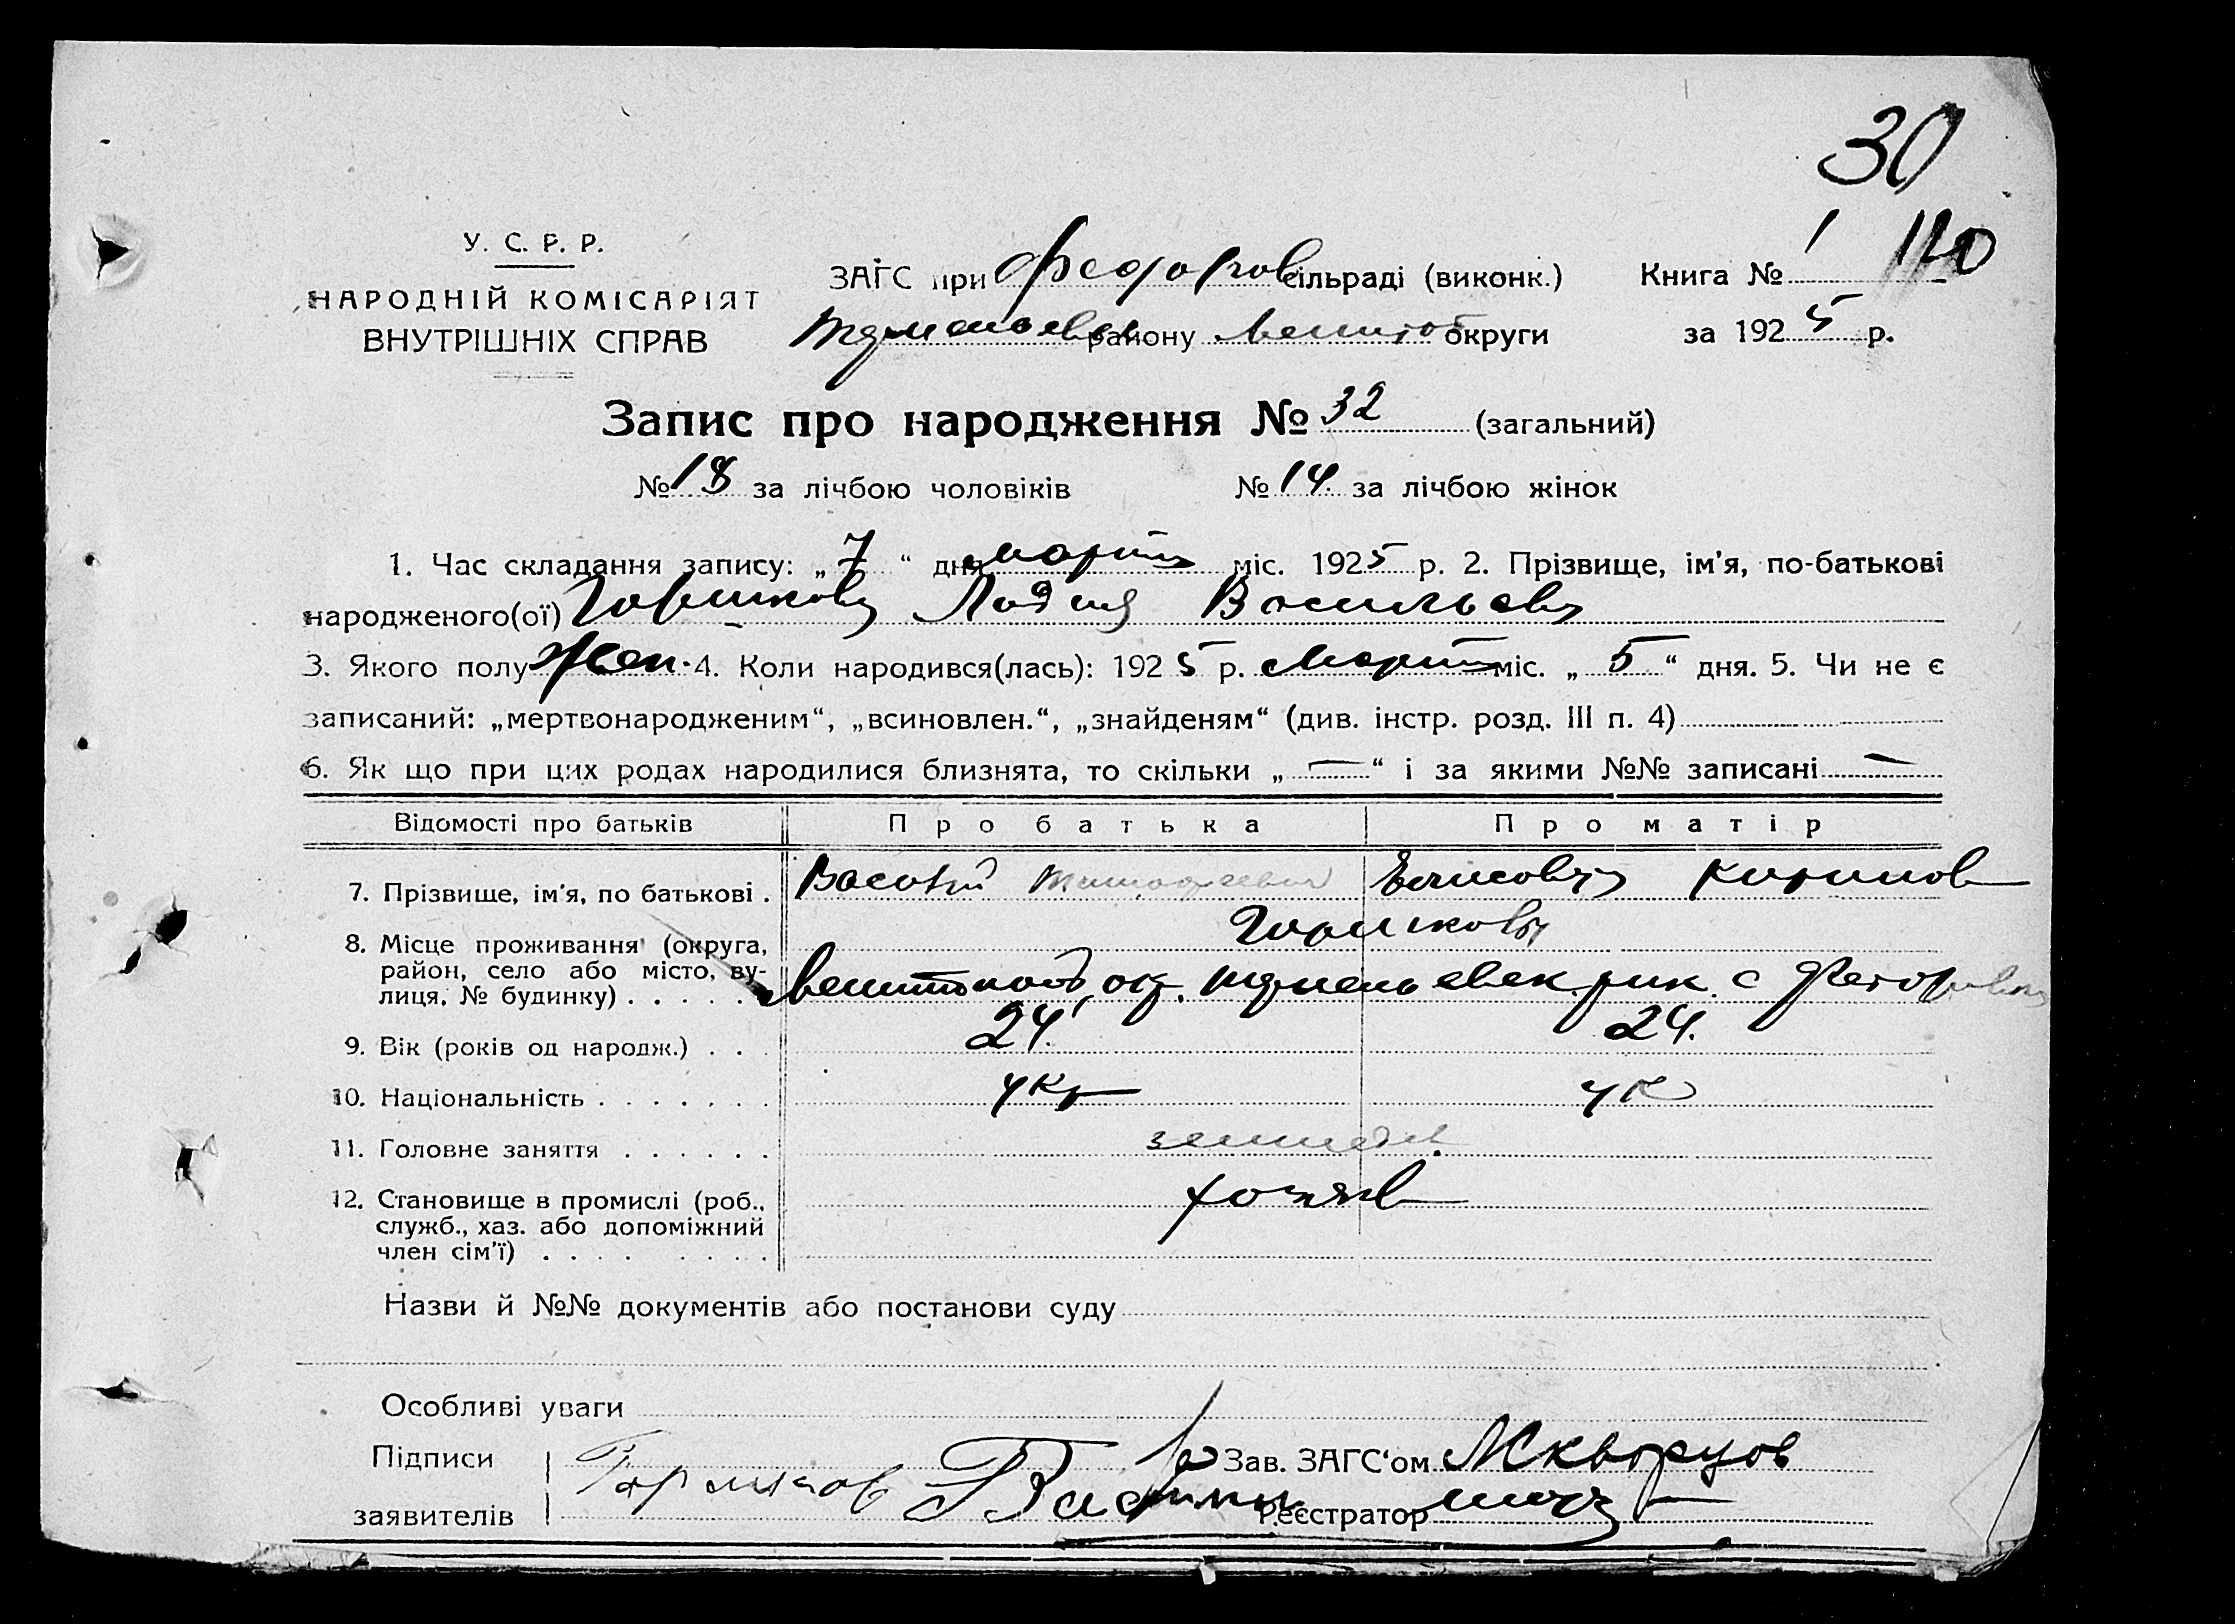 30
У. С. Р. Р.
НАРОДНІЙ КОМІСАРІЯТ
ВНУТРІШНІХ СПРАВ
ЗАГС при Федоров сільраді (виконк.)
району округи
Книга № 1 110
за 1925 р.
Запис про народження № 32 (загальний)
№ 18 за лічбою чоловіків № 14 за лічбою жінок
1. Час складання запису: „ 7 “ дня марта міс. 1925 р. 2. Прізвище, ім'я, по-батькові
народженого(ої) Горшкова Лидия Васильева
3. Якого полу Жен. 4. Коли народився(лась): 1925 р. Марта міс. „ 5 “ дня. 5. Чи не є
записаний: „мертвонародженим“, „всиновлен.“, „знайденям“ (див. інстр. розд. III п. 4)
6. Як що при цих родах народилися близнята, то скільки „ — “ і за якими №№ записані —
Відомості про батьків Про батька Про матір
7. Прізвище, ім'я, по батькові . Василий Тимофеевич
Горшковы
8. Місце проживання (округа,
район, село або місто, ву-
лиця, № будинку) . . . . . . с Федоровка
9. Вік (років од народж.) . . . 24. 24.
10. Національність . . . . . . . укр ук
11. Головне заняття . . . . . . землед.
12. Становище в промислі (роб.,
служб., хаз. або допоміжний
член сім'ї) . . . . . . . . хозяев
Назви й №№ документів або постанови суду
Особливі уваги
Підписи
заявителів
Горшков Васили
Зав. ЗАГС'ом Скворцов
Реєстратор